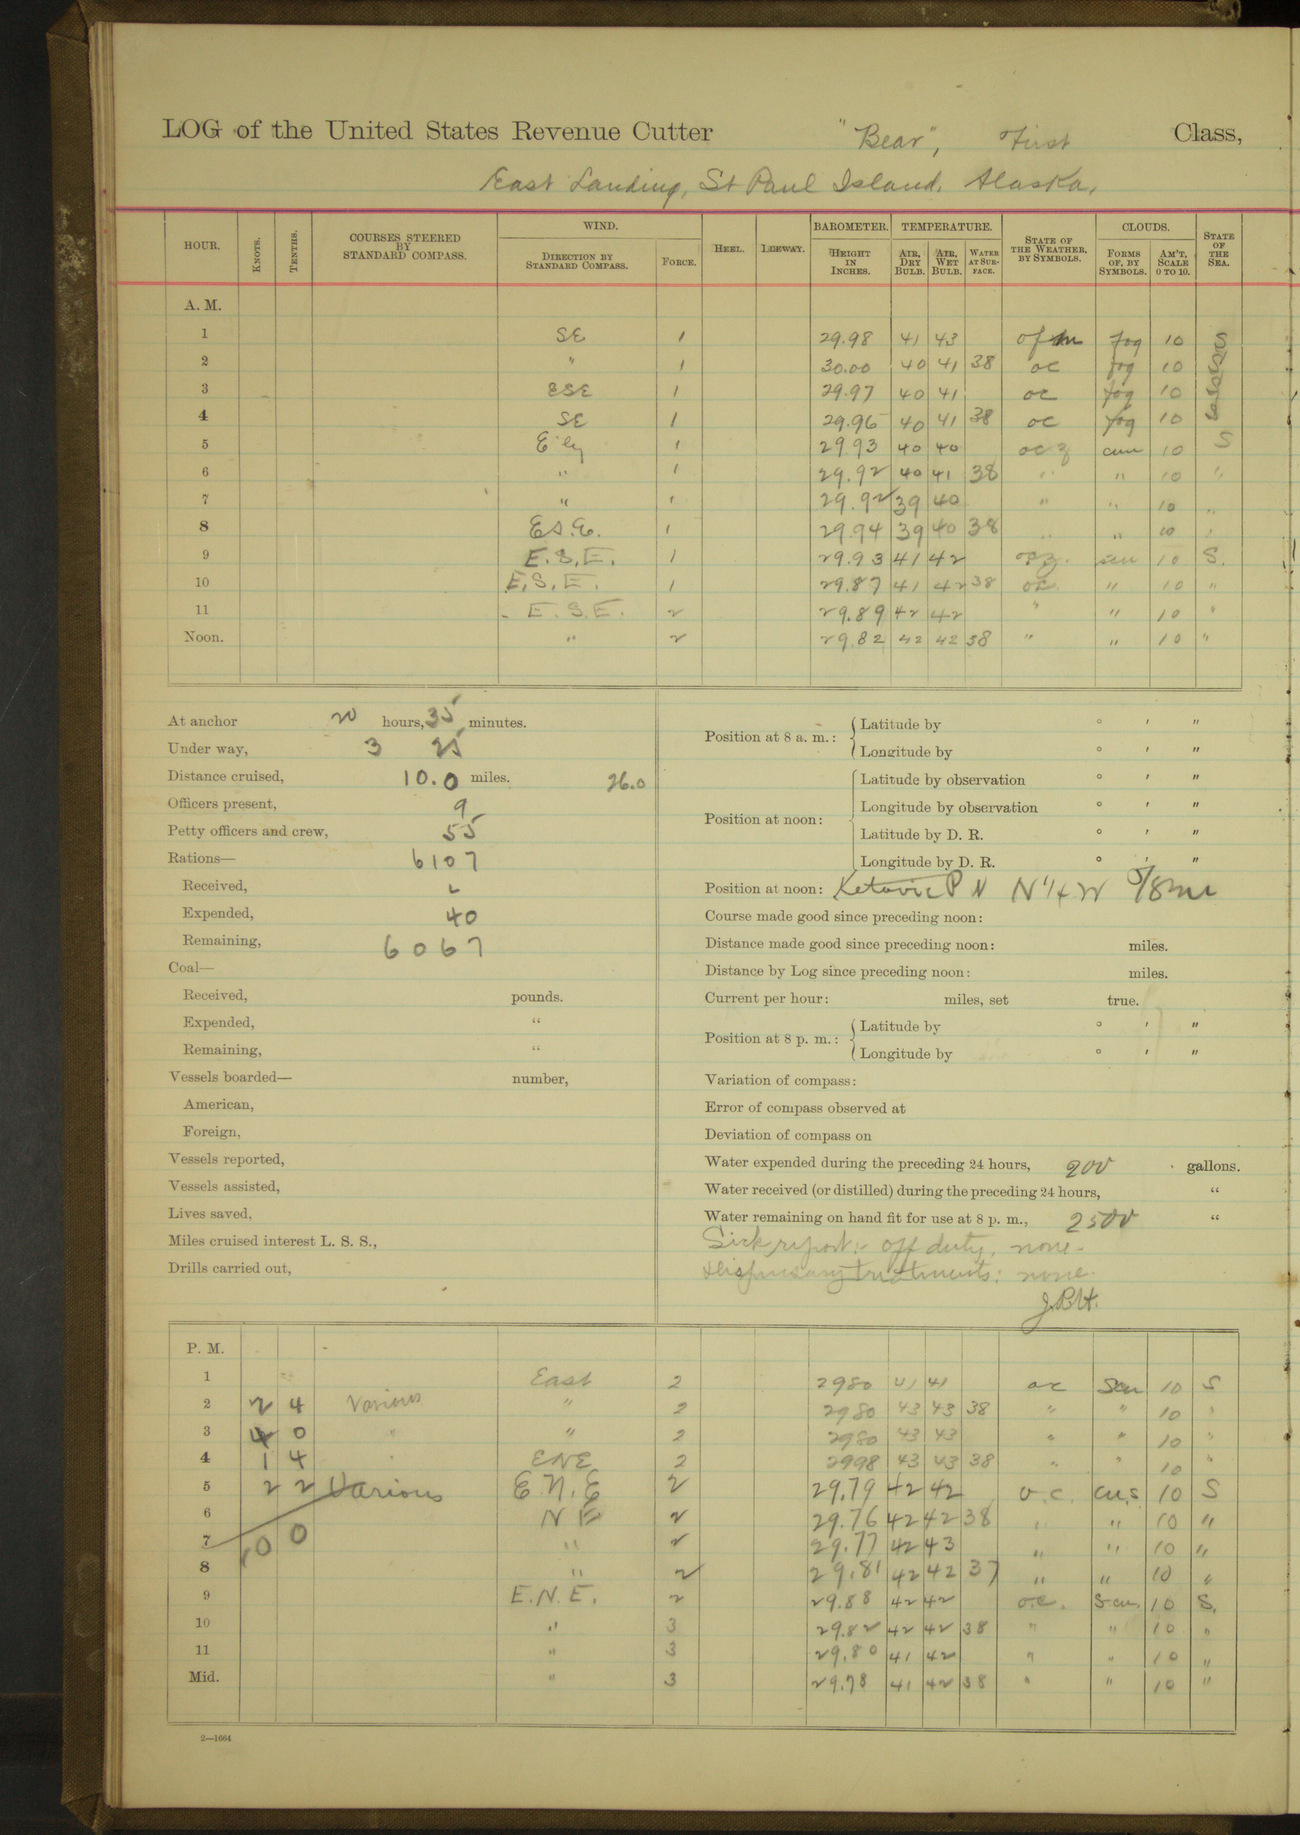 LOG of the United States Revenue Cutter "Bear", First Class,
East Landing, St Paul Island. Alaska.
HOUR. KNOTS. TENTHS. COURSES STEERED BY STANDARD COMPASS. WIND. DIRECTION BY STANDARD COMPASS. FORCE. HEEL. LEEWAY. BAROMETER. HEIGHT IN INCHES. TEMPERATURE. AIR, DRY BULB. AIR, WET BULB. WATER AT SURFACE. STATE OF THE WEATHER, BY SYMBOLS. CLOUDS. FORMS OF, BY SYMBOLS. AM'T, SCALE 0 TO 10. STATE OF THE SEA.
A. M.
1 SE 1 29.98 41 43 ofm fog 10 S
2 " 1 30.00 40 41 38 oc fog 10 S
3 ESE 1 29.97 40 41 oc fog 10 S
4 SE 1 29.96 40 41 38 oc fog 10 S
5 E'ly 1 29.93 40 40 ocz cum 10 S
6 " 1 29.92 40 41 38 " " 10 "
7 " 1 29.92 39 40 " " 10 "
8 E.S.E. 1 29.94 39 40 38 " " 10 "
9 E.S.E. 1 29.93 41 42 ocz. scu 10 S.
10 E.S.E. 1 29.87 41 42 38 oc. " 10 "
11 E.S.E. 2 29.89 42 42 " " 10 "
Noon. " 2 29.82 42 42 38 " " 10 "
At anchor 20 hours, 35 minutes.
Under way, 3 25
Distance cruised, 10.0 miles. 26.0
Officers present, 9
Petty officers and crew, 55
Rations— 6107
Received,
Expended, 40
Remaining, 6067
Coal—
Received, pounds.
Expended, "
Remaining, "
Vessels boarded— number,
American,
Foreign,
Vessels reported,
Vessels assisted,
Lives saved,
Miles cruised interest L. S. S.,
Drills carried out,
Position at 8 a. m.: Latitude by ° ' "
Longitude by ° ' "
Position at noon: Latitude by observation ° ' "
Longitude by observation ° ' "
Latitude by D. R. ° ' "
Longitude by D. R. ° ' "
Position at noon: Ketavie P N N 1/4 W
Course made good since preceding noon:
Distance made good since preceding noon: miles.
Distance by Log since preceding noon: miles.
Current per hour: miles, set true.
Position at 8 p. m.: Latitude by ° ' "
Longitude by ° ' "
Variation of compass:
Error of compass observed at
Deviation of compass on
Water expended during the preceding 24 hours, 200 gallons.
Water received (or distilled) during the preceding 24 hours, "
Water remaining on hand fit for use at 8 p. m., 2500 "
Sick report: off duty, none.
Dispensary treatments: none.
J.P.H.
P. M.
1 East 2 2980 41 41 oc Scu 10 S
2 2 4 Various " 2 2980 43 43 38 " " 10 "
3 4 0 " " 2 2980 43 43 " " 10 "
4 1 4 " ENE 2 2998 43 43 38 " " 10 "
5 2 2 Various E.N.E 2 29.79 42 42 o.c. cu.s 10 S
6 NE 2 29.76 42 42 38 " " 10 "
7 10 0 " 2 29.77 42 43 " " 10 "
8 " 2 29.81 42 42 37 " " 10 "
9 E.N.E. 2 29.88 42 42 o.c. S-cu. 10 S.
10 " 3 29.82 42 42 38 " " 10 "
11 " 3 29.80 41 42 " " 10 "
Mid. " 3 29.78 41 42 38 " " 10 "
2—1664